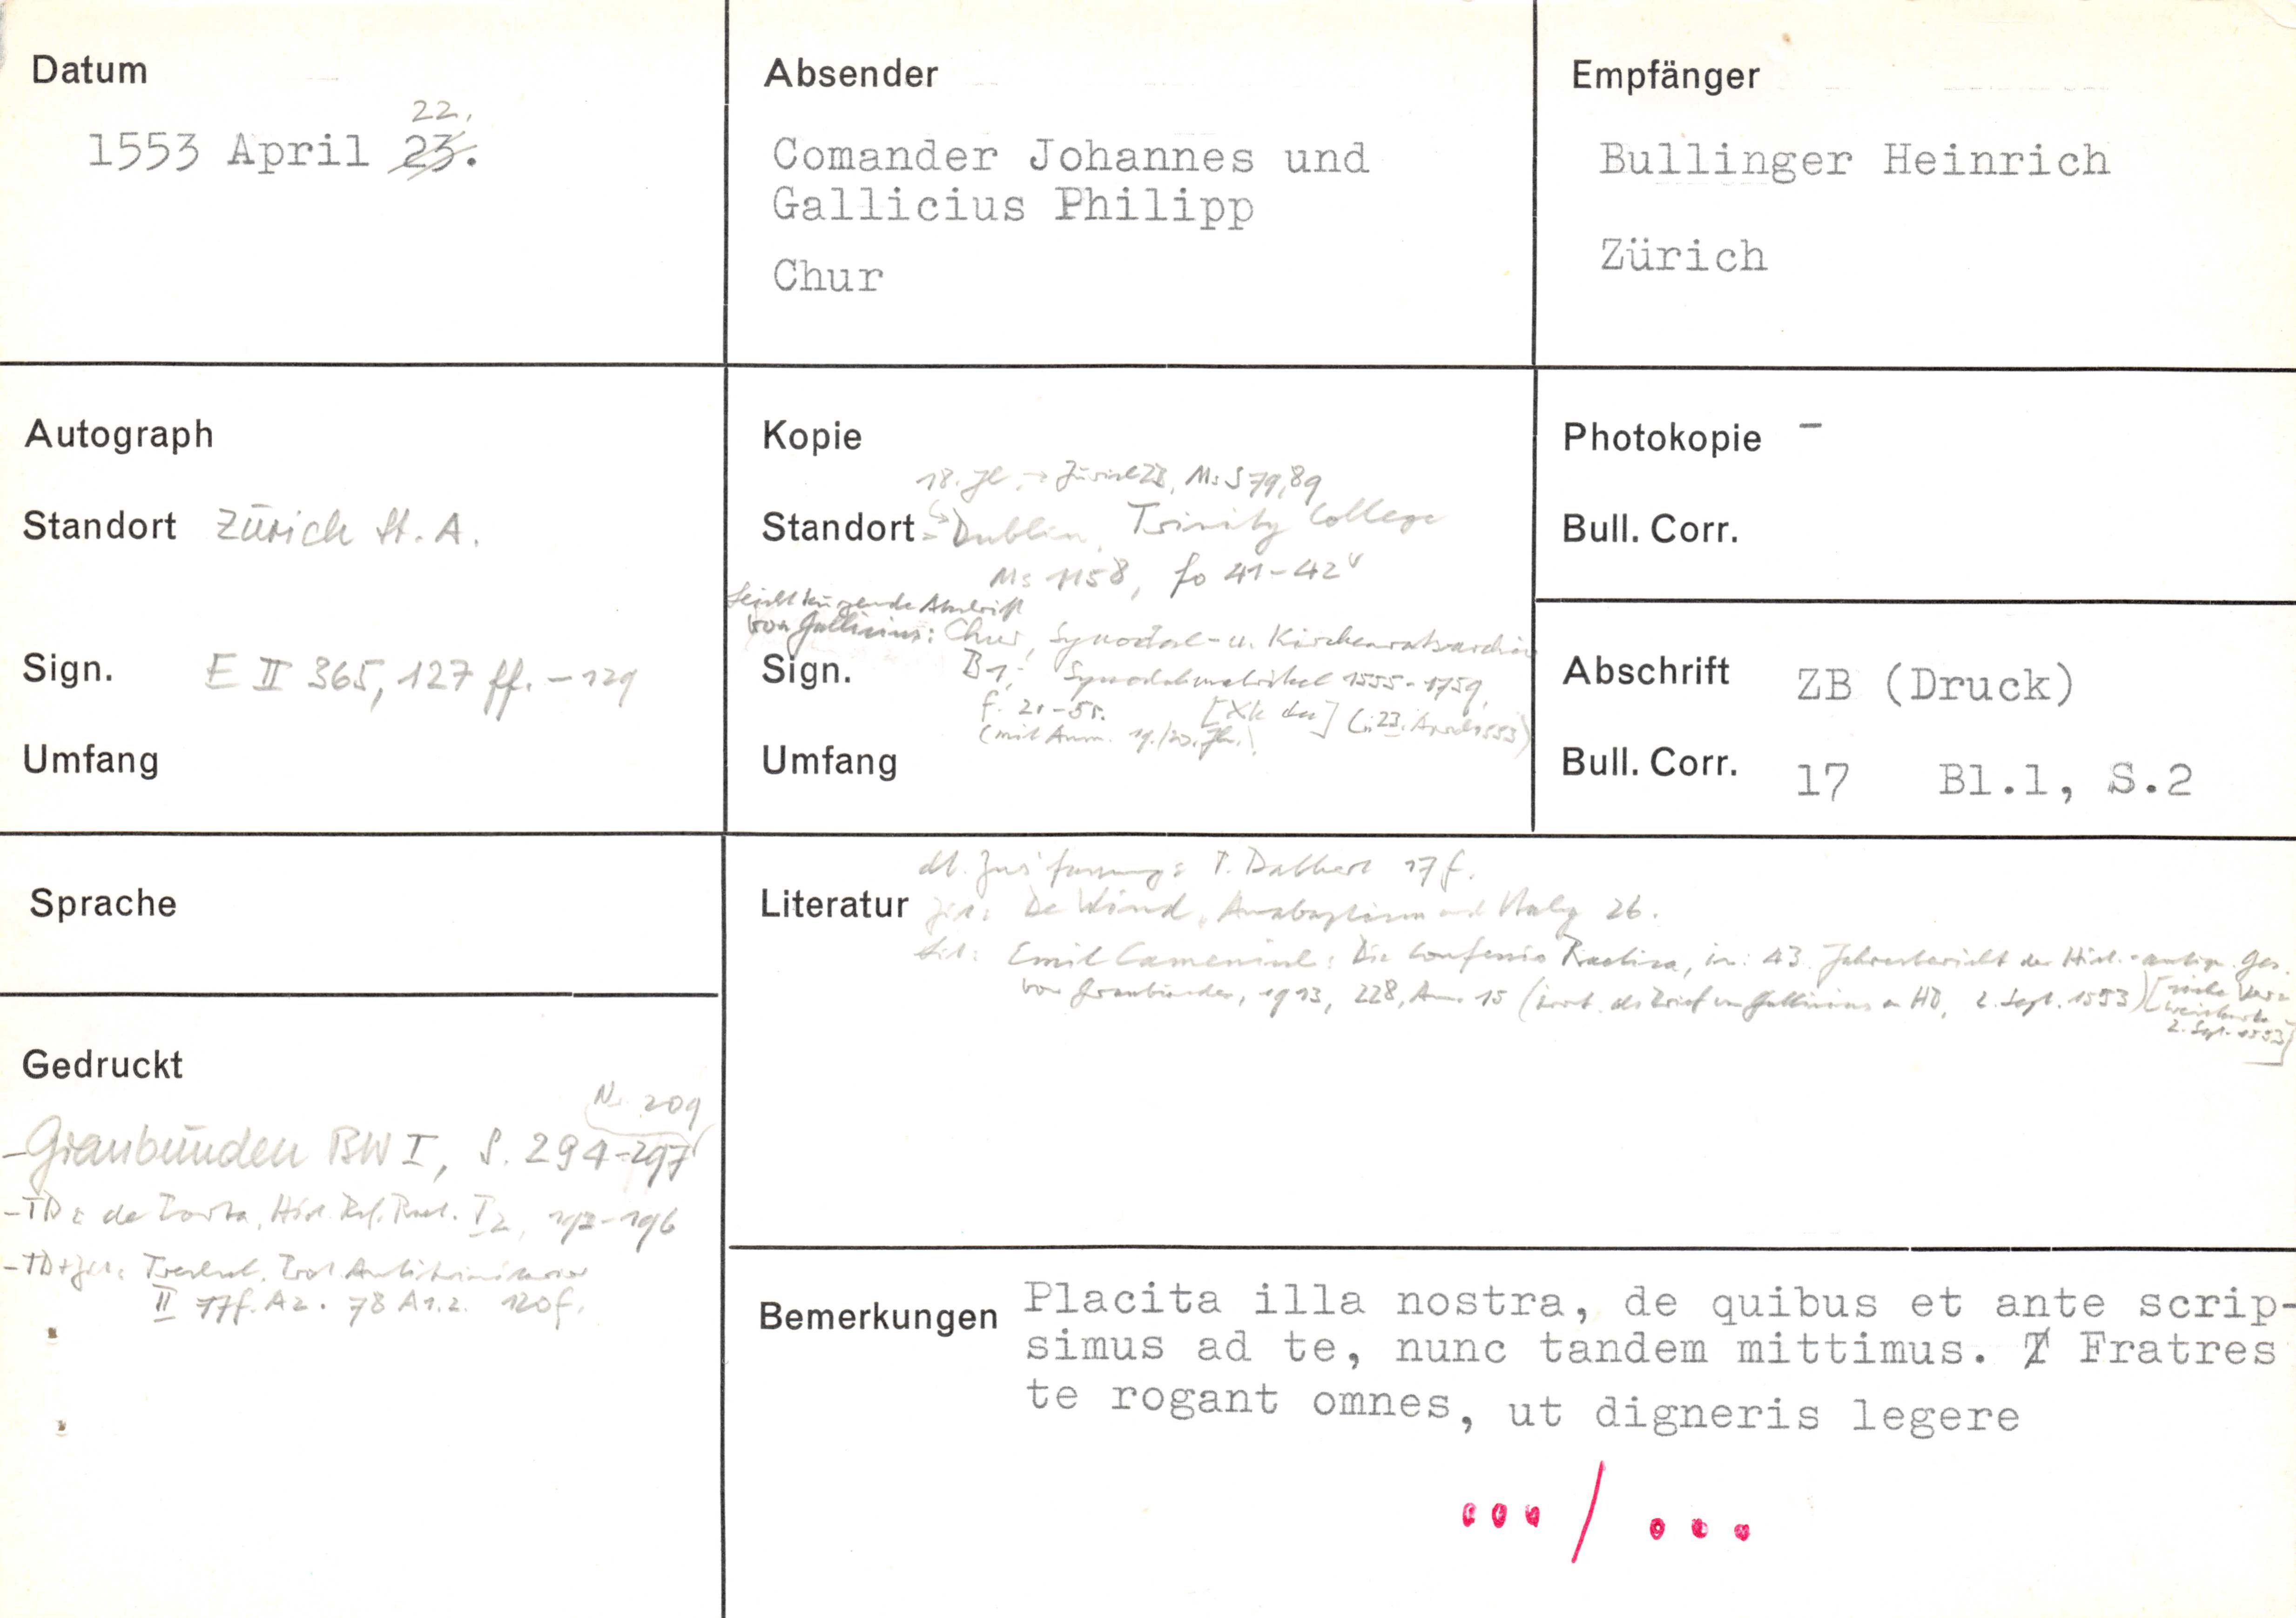 Datum
22.
1553 April 23.
Absender
Comander Johannes und
Gallicius Philipp
Chur
Empfänger
Bullinger Heinrich
Zürich
Autograph
Standort Zürich St. A.
Sign. E II 365, 127 ff. - 129
Umfang
Kopie
18. Jh. → Zürich ZB, Ms S 79, 89
Standort Dublin, Trinity College
Ms 1158, fo 41-42v
von Gallicius: Chur, Synodal- u. Kirchenratsarchiv
Sign. B 1, Synodalmatrikel 1555-1759,
(mit Anm. 19./20. Jh.) (: 23. April 1553)
Umfang
Photokopie -
Bull. Corr.
Abschrift ZB (Druck)
Bull. Corr. 17 Bl.1, S.2
Sprache
Literatur
dt. Zus'fassung: T. Dalbert 17 f.
zit.: De Wind, Anabaptism and Italy 26.
zit.: Emil Camenisch: Die Confessio Raetica, in: 43. Jahresbericht der Hist.-antiq. Ges.
von Graubünden, 1913, 228, Anm. 15 (irrt. als Brief von Gallicius an HB, 2. Sept. 1553) [siehe Ver-
weiskarte
2. Sept. 1553]
Gedruckt
Nr. 209
- Graubünden BW I, S. 294-297
- TD: de Porta, Hist. Ref. Raet. I 2, 192-196
- TD+zit.: Trechsel, Prot. Antitrinitarier
II 77f. A 2. 78 A 1.2. 120 f.
Bemerkungen Placita illa nostra, de quibus et ante scrip-
simus ad te, nunc tandem mittimus. / Fratres
te rogant omnes, ut digneris legere
... / ...